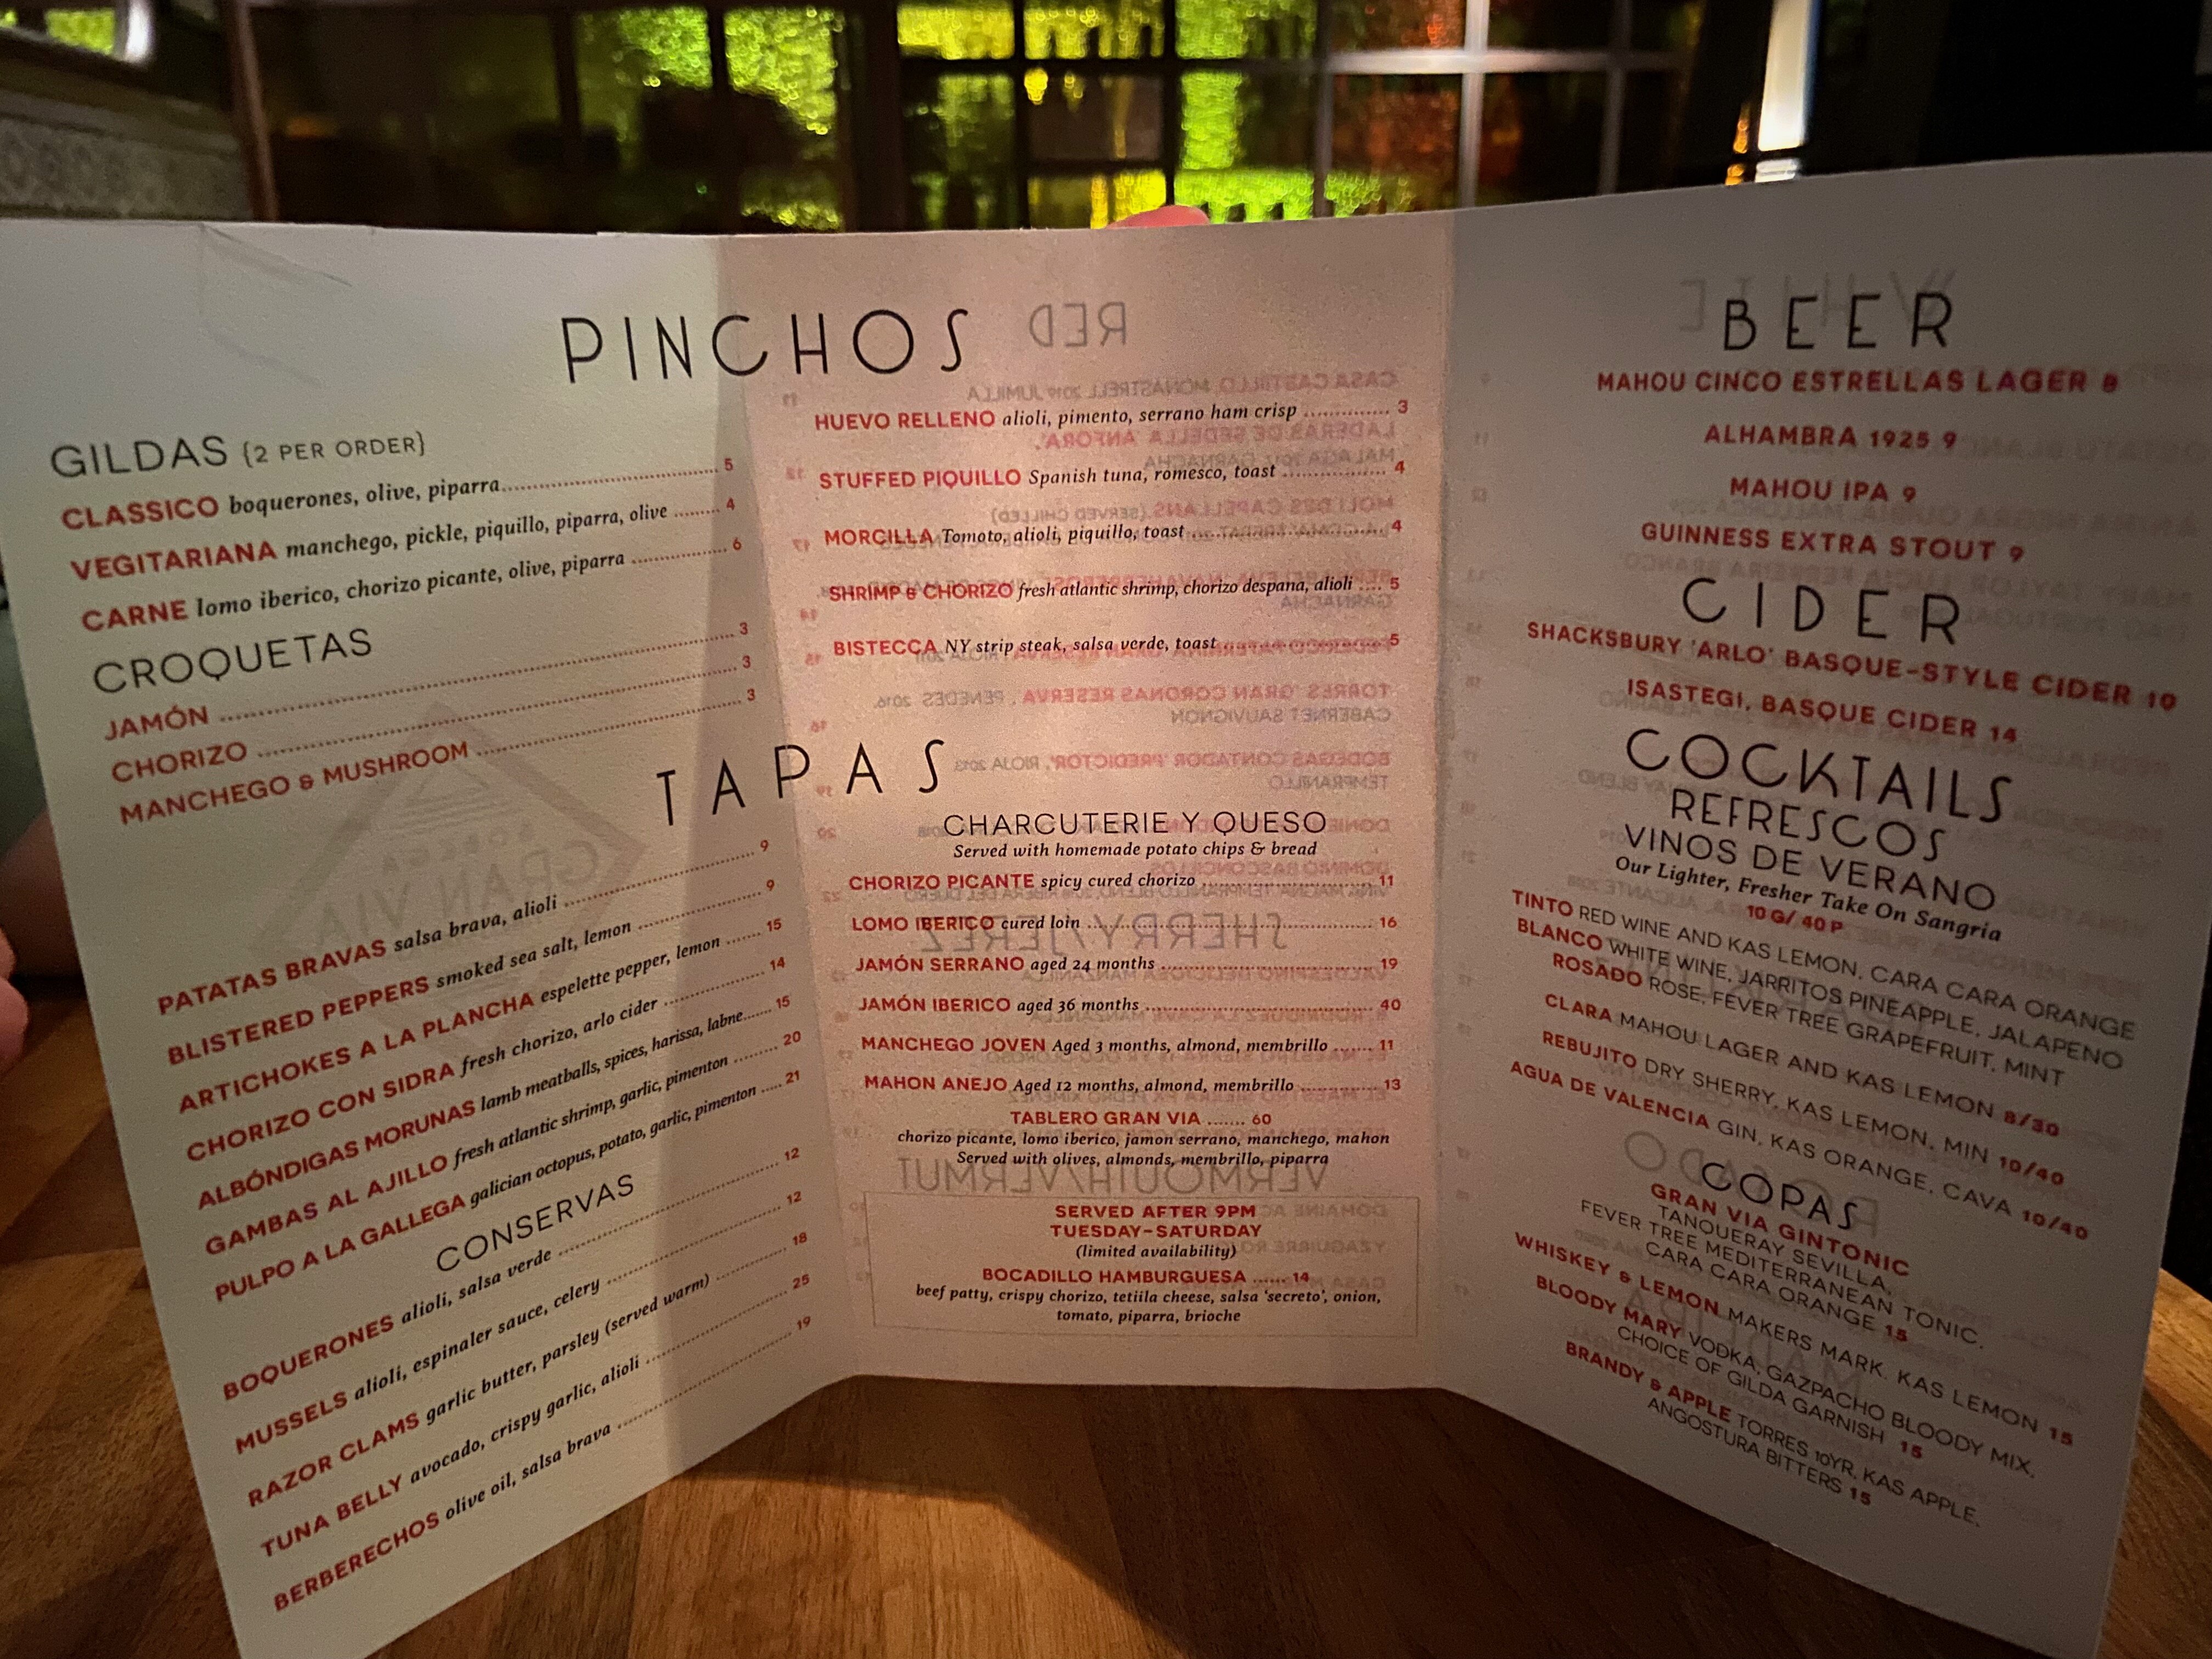 PINCHOS
GILDAS {2 PER ORDER}
CLASSICO boquerones, olive, piparra 5
VEGITARIANA manchego, pickle, piquillo, piparra, olive 4
CARNE lomo iberico, chorizo picante, olive, piparra 6
CROQUETAS
JAMÓN 3
CHORIZO 3
MANCHEGO & MUSHROOM 3
HUEVO RELLENO alioli, pimento, serrano ham crisp 3
STUFFED PIQUILLO Spanish tuna, romesco, toast 4
MORCILLA Tomoto, alioli, piquillo, toast 4
SHRIMP & CHORIZO fresh atlantic shrimp, chorizo despana, alioli 5
BISTECCA NY strip steak, salsa verde, toast 5
TAPAS
PATATAS BRAVAS salsa brava, alioli 9
BLISTERED PEPPERS smoked sea salt, lemon 9
ARTICHOKES A LA PLANCHA espelette pepper, lemon 15
CHORIZO CON SIDRA fresh chorizo, arlo cider 14
ALBÓNDIGAS MORUNAS lamb meatballs, spices, harissa, labne 15
GAMBAS AL AJILLO fresh atlantic shrimp, garlic, pimenton 20
PULPO A LA GALLEGA galician octopus, potato, garlic, pimenton 21
CONSERVAS
BOQUERONES alioli, salsa verde 12
MUSSELS alioli, espinaler sauce, celery 12
RAZOR CLAMS garlic butter, parsley (served warm) 18
TUNA BELLY avocado, crispy garlic, alioli 25
BERBERECHOS olive oil, salsa brava 19
CHARCUTERIE Y QUESO
Served with homemade potato chips & bread
CHORIZO PICANTE spicy cured chorizo 11
LOMO IBERICO cured loin 16
JAMÓN SERRANO aged 24 months 19
JAMÓN IBERICO aged 36 months 40
MANCHEGO JOVEN Aged 3 months, almond, membrillo 11
MAHON ANEJO Aged 12 months, almond, membrillo 13
TABLERO GRAN VIA ....... 60
chorizo picante, lomo iberico, jamon serrano, manchego, mahon
Served with olives, almonds, membrillo, piparra
SERVED AFTER 9PM
TUESDAY-SATURDAY
(limited availability)
BOCADILLO HAMBURGUESA ...... 14
beef patty, crispy chorizo, tetiila cheese, salsa 'secreto', onion,
tomato, piparra, brioche
BEER
MAHOU CINCO ESTRELLAS LAGER 8
ALHAMBRA 1925 9
MAHOU IPA 9
GUINNESS EXTRA STOUT 9
CIDER
SHACKSBURY 'ARLO' BASQUE-STYLE CIDER 10
ISASTEGI, BASQUE CIDER 14
COCKTAILS
REFRESCOS
VINOS DE VERANO
Our Lighter, Fresher Take On Sangria
10 G/ 40 P
TINTO RED WINE AND KAS LEMON, CARA CARA ORANGE
BLANCO WHITE WINE, JARRITOS PINEAPPLE, JALAPENO
ROSADO ROSE, FEVER TREE GRAPEFRUIT, MINT
CLARA MAHOU LAGER AND KAS LEMON 8/30
REBUJITO DRY SHERRY, KAS LEMON, MIN 10/40
AGUA DE VALENCIA GIN, KAS ORANGE, CAVA 10/40
COPAS
GRAN VIA GINTONIC
TANQUERAY SEVILLA,
FEVER TREE MEDITERRANEAN TONIC,
CARA CARA ORANGE 15
WHISKEY & LEMON MAKERS MARK, KAS LEMON 15
BLOODY MARY VODKA, GAZPACHO BLOODY MIX,
CHOICE OF GILDA GARNISH 15
BRANDY & APPLE TORRES 10YR, KAS APPLE,
ANGOSTURA BITTERS 15